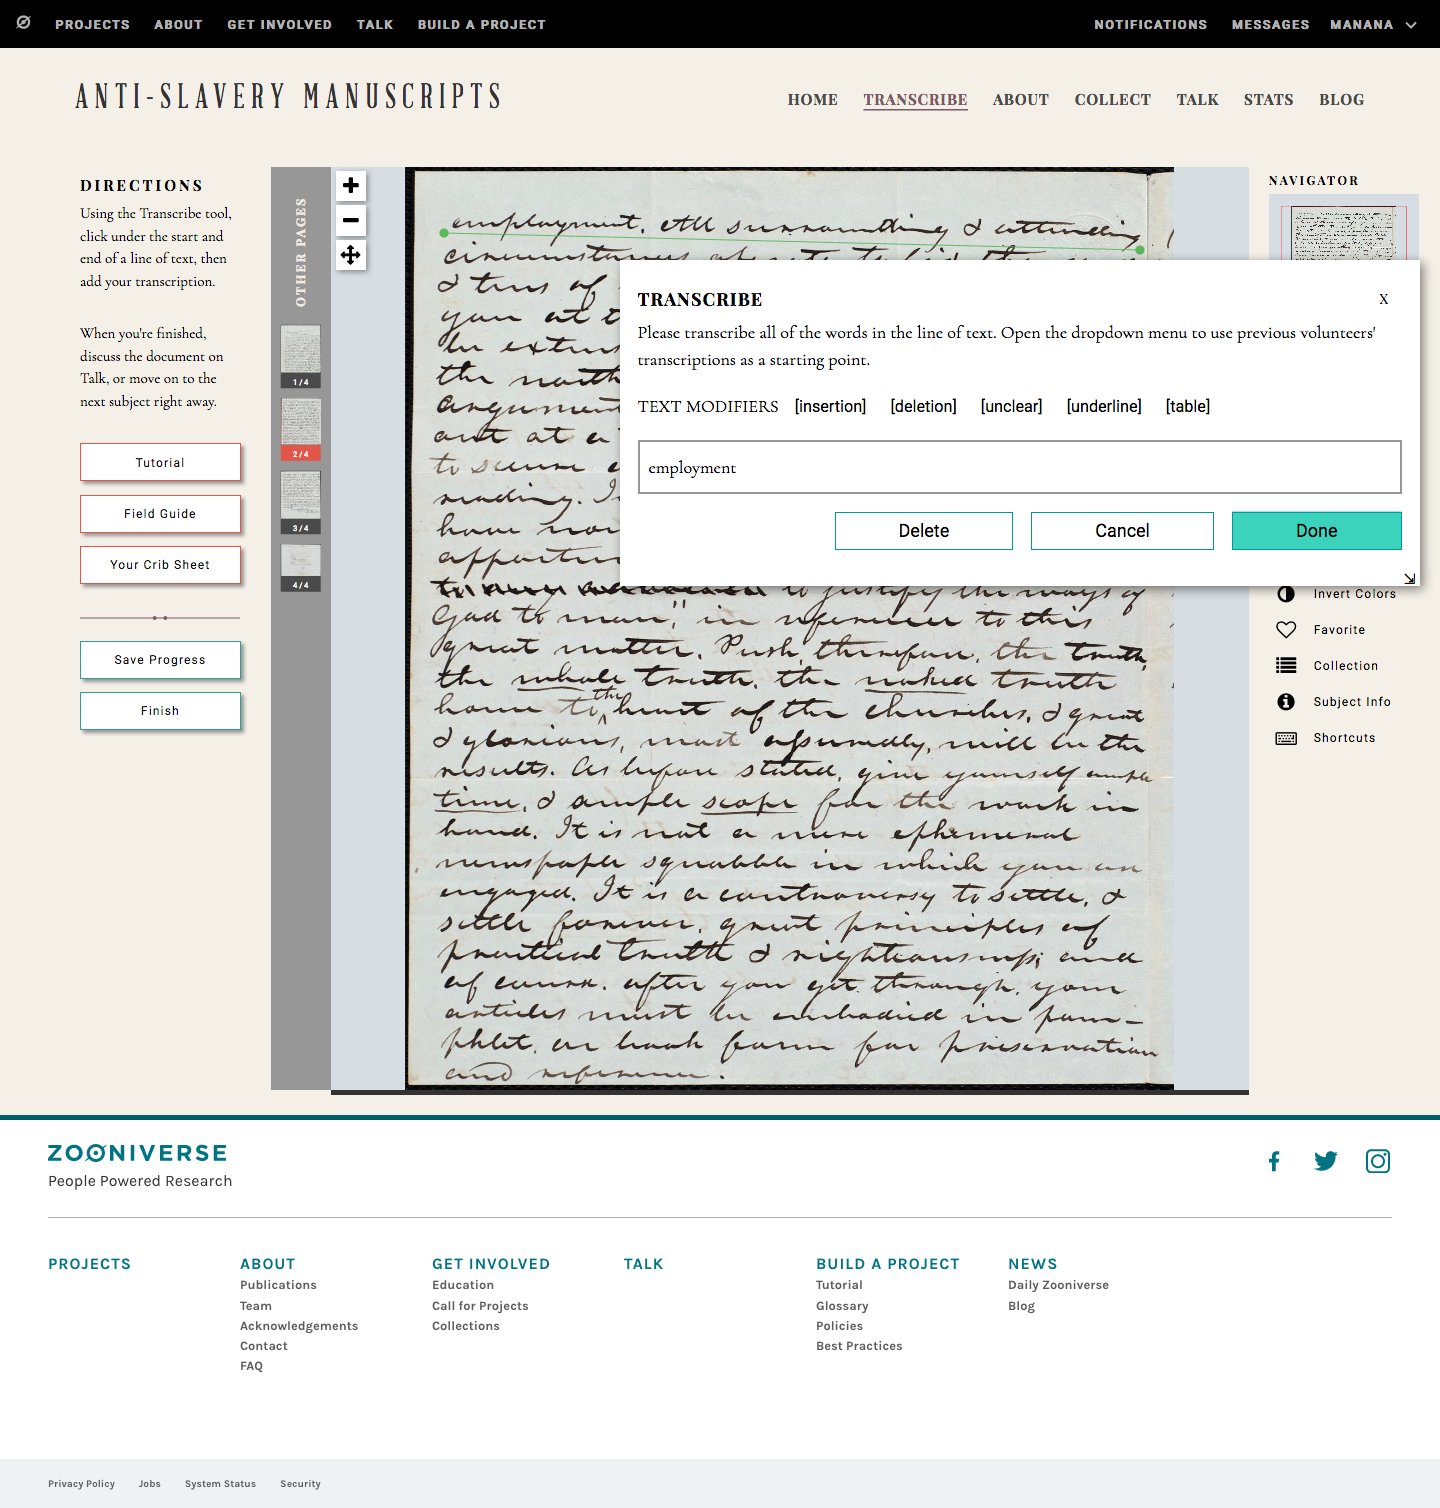 PROJECTS ABOUT GET INVOLVED TALK BUILD A PROJECT NOTIFICATIONS MESSAGES MANANA
ANTI-SLAVERY MANUSCRIPTS
HOME TRANSCRIBE ABOUT COLLECT TALK STATS BLOG
DIRECTIONS
Using the Transcribe tool,
click under the start and
end of a line of text, then
add your transcription.
When you're finished,
discuss the document on
Talk, or move on to the
next subject right away.
Tutorial
Field Guide
Your Crib Sheet
Save Progress
Finish
OTHER PAGES
1/4
2/4
3/4
4/4
employment. All surrounding & attending
circumstances
& thus of
you at t
be exten
the north
argument
ant at a
to secure
reading. I
have non
apportun
to justify the ways of
God to man", in reference to this
great matter. Push, therefore, the truth,
the whole truth, the naked truth
home to the heart of the churches, & great
& glorious, most assuredly, will be the
results. As before stated, give yourself ample
time, & ample scope for the work in
hand. It is not a mere ephemeral
newspaper squabble in which you are
engaged. It is a controversy to settle, &
settle forever, great principles of
practical truth & righteousness; and
of course, after you get through, your
articles must be embodied in pam-
phlet, or book form for preservation
and reference.
TRANSCRIBE X
Please transcribe all of the words in the line of text. Open the dropdown menu to use previous volunteers'
transcriptions as a starting point.
TEXT MODIFIERS [insertion] [deletion] [unclear] [underline] [table]
employment
Delete Cancel Done
NAVIGATOR
Invert Colors
Favorite
Collection
Subject Info
Shortcuts
ZOONIVERSE
People Powered Research
PROJECTS
ABOUT
Publications
Team
Acknowledgements
Contact
FAQ
GET INVOLVED
Education
Call for Projects
Collections
TALK
BUILD A PROJECT
Tutorial
Glossary
Policies
Best Practices
NEWS
Daily Zooniverse
Blog
Privacy Policy Jobs System Status Security